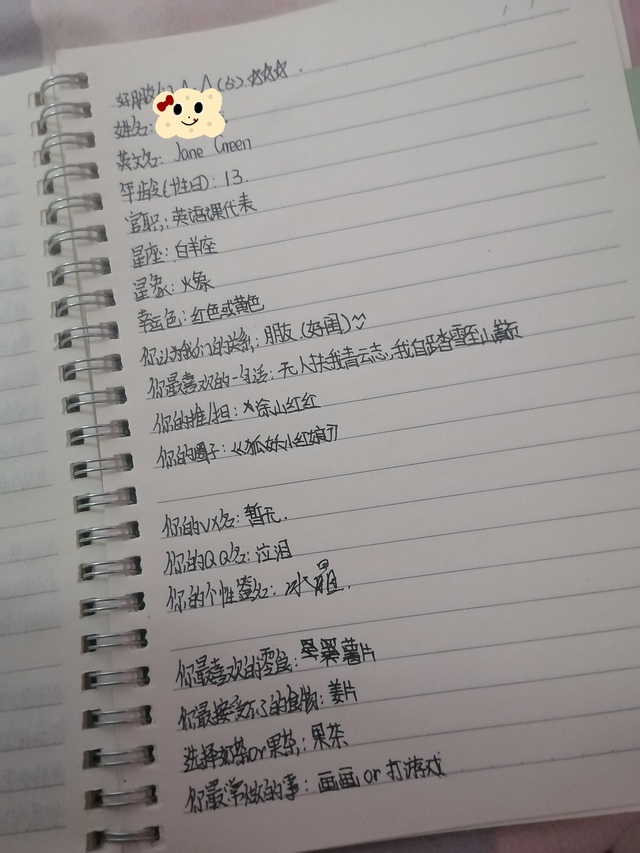 好朋友
姓名:
英文名: Jane Green
年龄(性日): 13.
官职: 英语课代表
星座: 白羊座
星象: 火象
幸运色: 红色或黄色
你认为我们的关系: 朋友.(好闺)
你最喜欢的一句话: 无人扶我青云志,我自踏雪至山巅
你的推/担: 涂山红红
你的圈子: 《狐妖小红娘》
你的VX名: 暂无.
你的QQ名: 泣泪
你的个性签名:
你最喜欢的零食: 薯片
你最接受不了的食物: 姜片
选择奶茶or果茶: 果茶
你最常做的事: 画画 or 打游戏